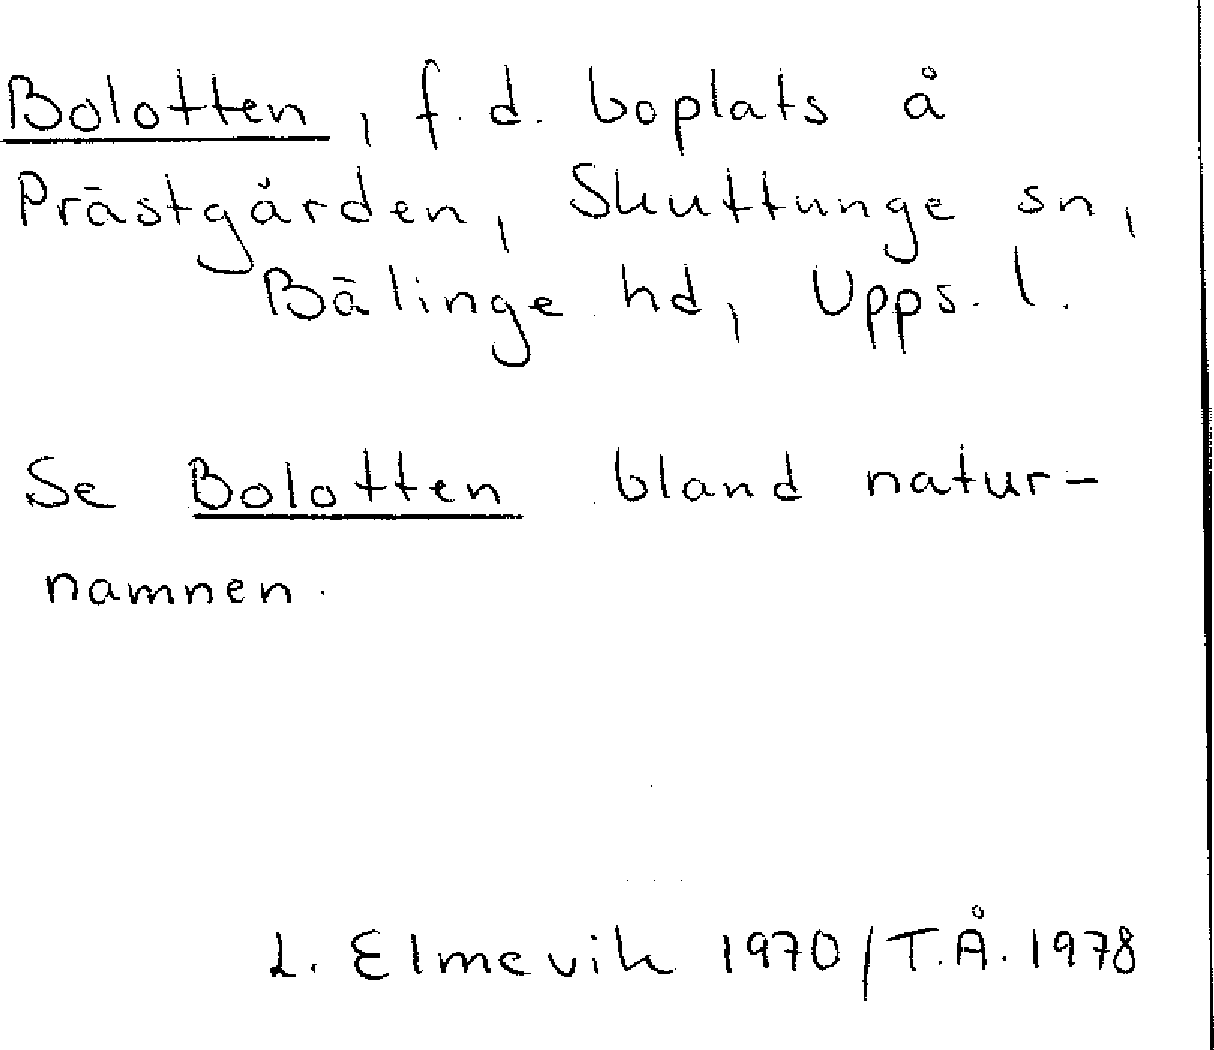 Bolotten, f.d. boplats å
Prästgården, Skuttunge sn,
Bälinge hd, Upps. l.
Se Bolotten bland natur-
namnen.
L. Elmevik 1970/T.Å. 1978